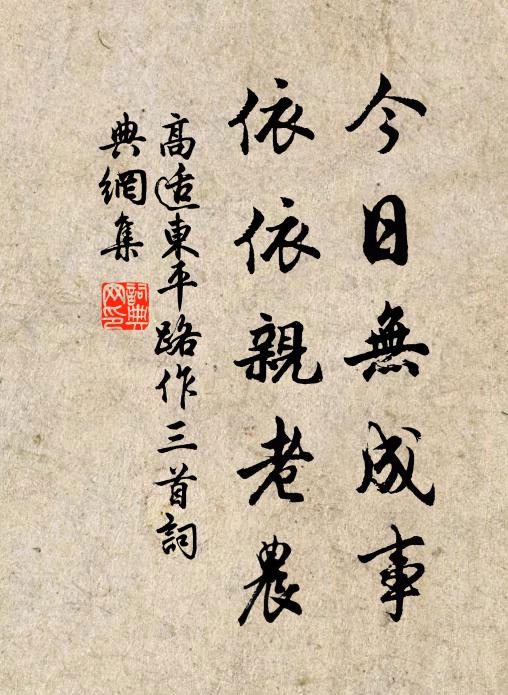 今日無成事
依依親老農
高适東平路作三首詞
典網集
詞典網印